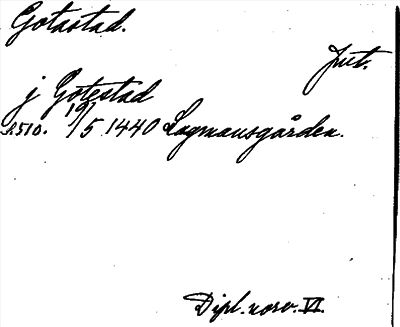 Gotastad.
Jut.
j Gotestad
s.510. 19/5 1440 Lagmansgården.
Dipl. norv. VI.